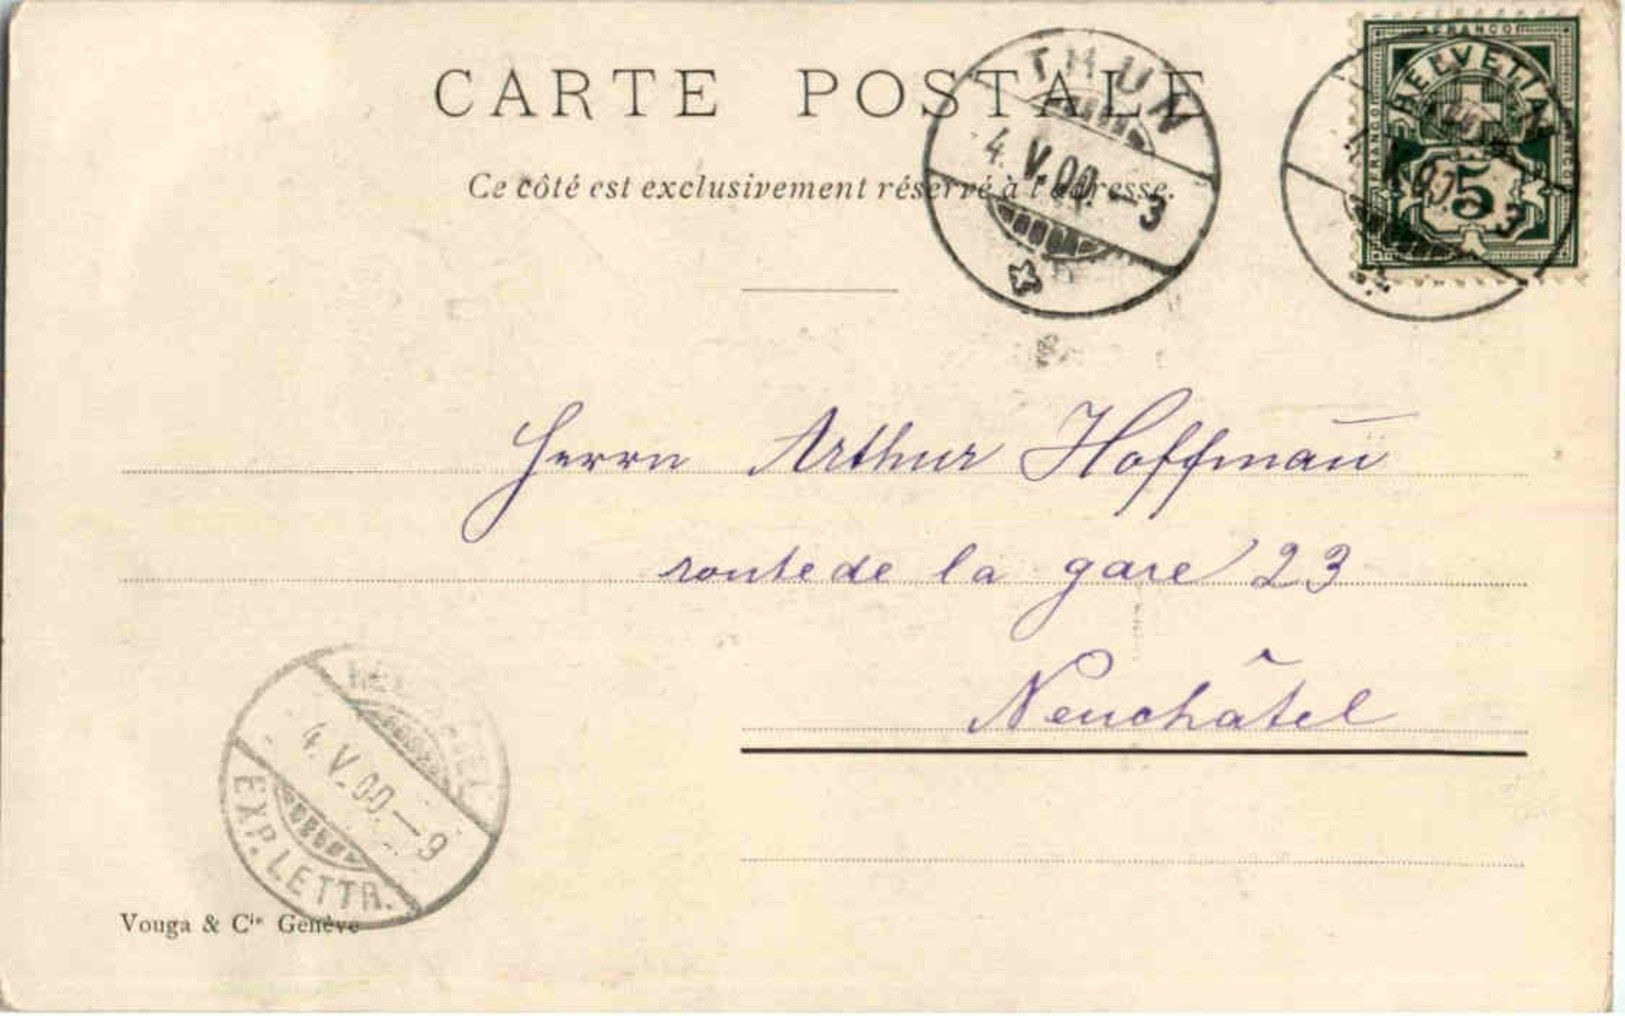 CARTE POSTALE
Ce côté est exclusivement réservé à l'adresse.
THUN
4. V. 00.—3
FRANCO
HELVETIA
FRANCO
5
00.—3
Herrn Arthur Hoffmañ
route de la gare 23
Neuchâtel
4. V. 00.—9
EXP. LETTR.
Vouga & Cie Genève